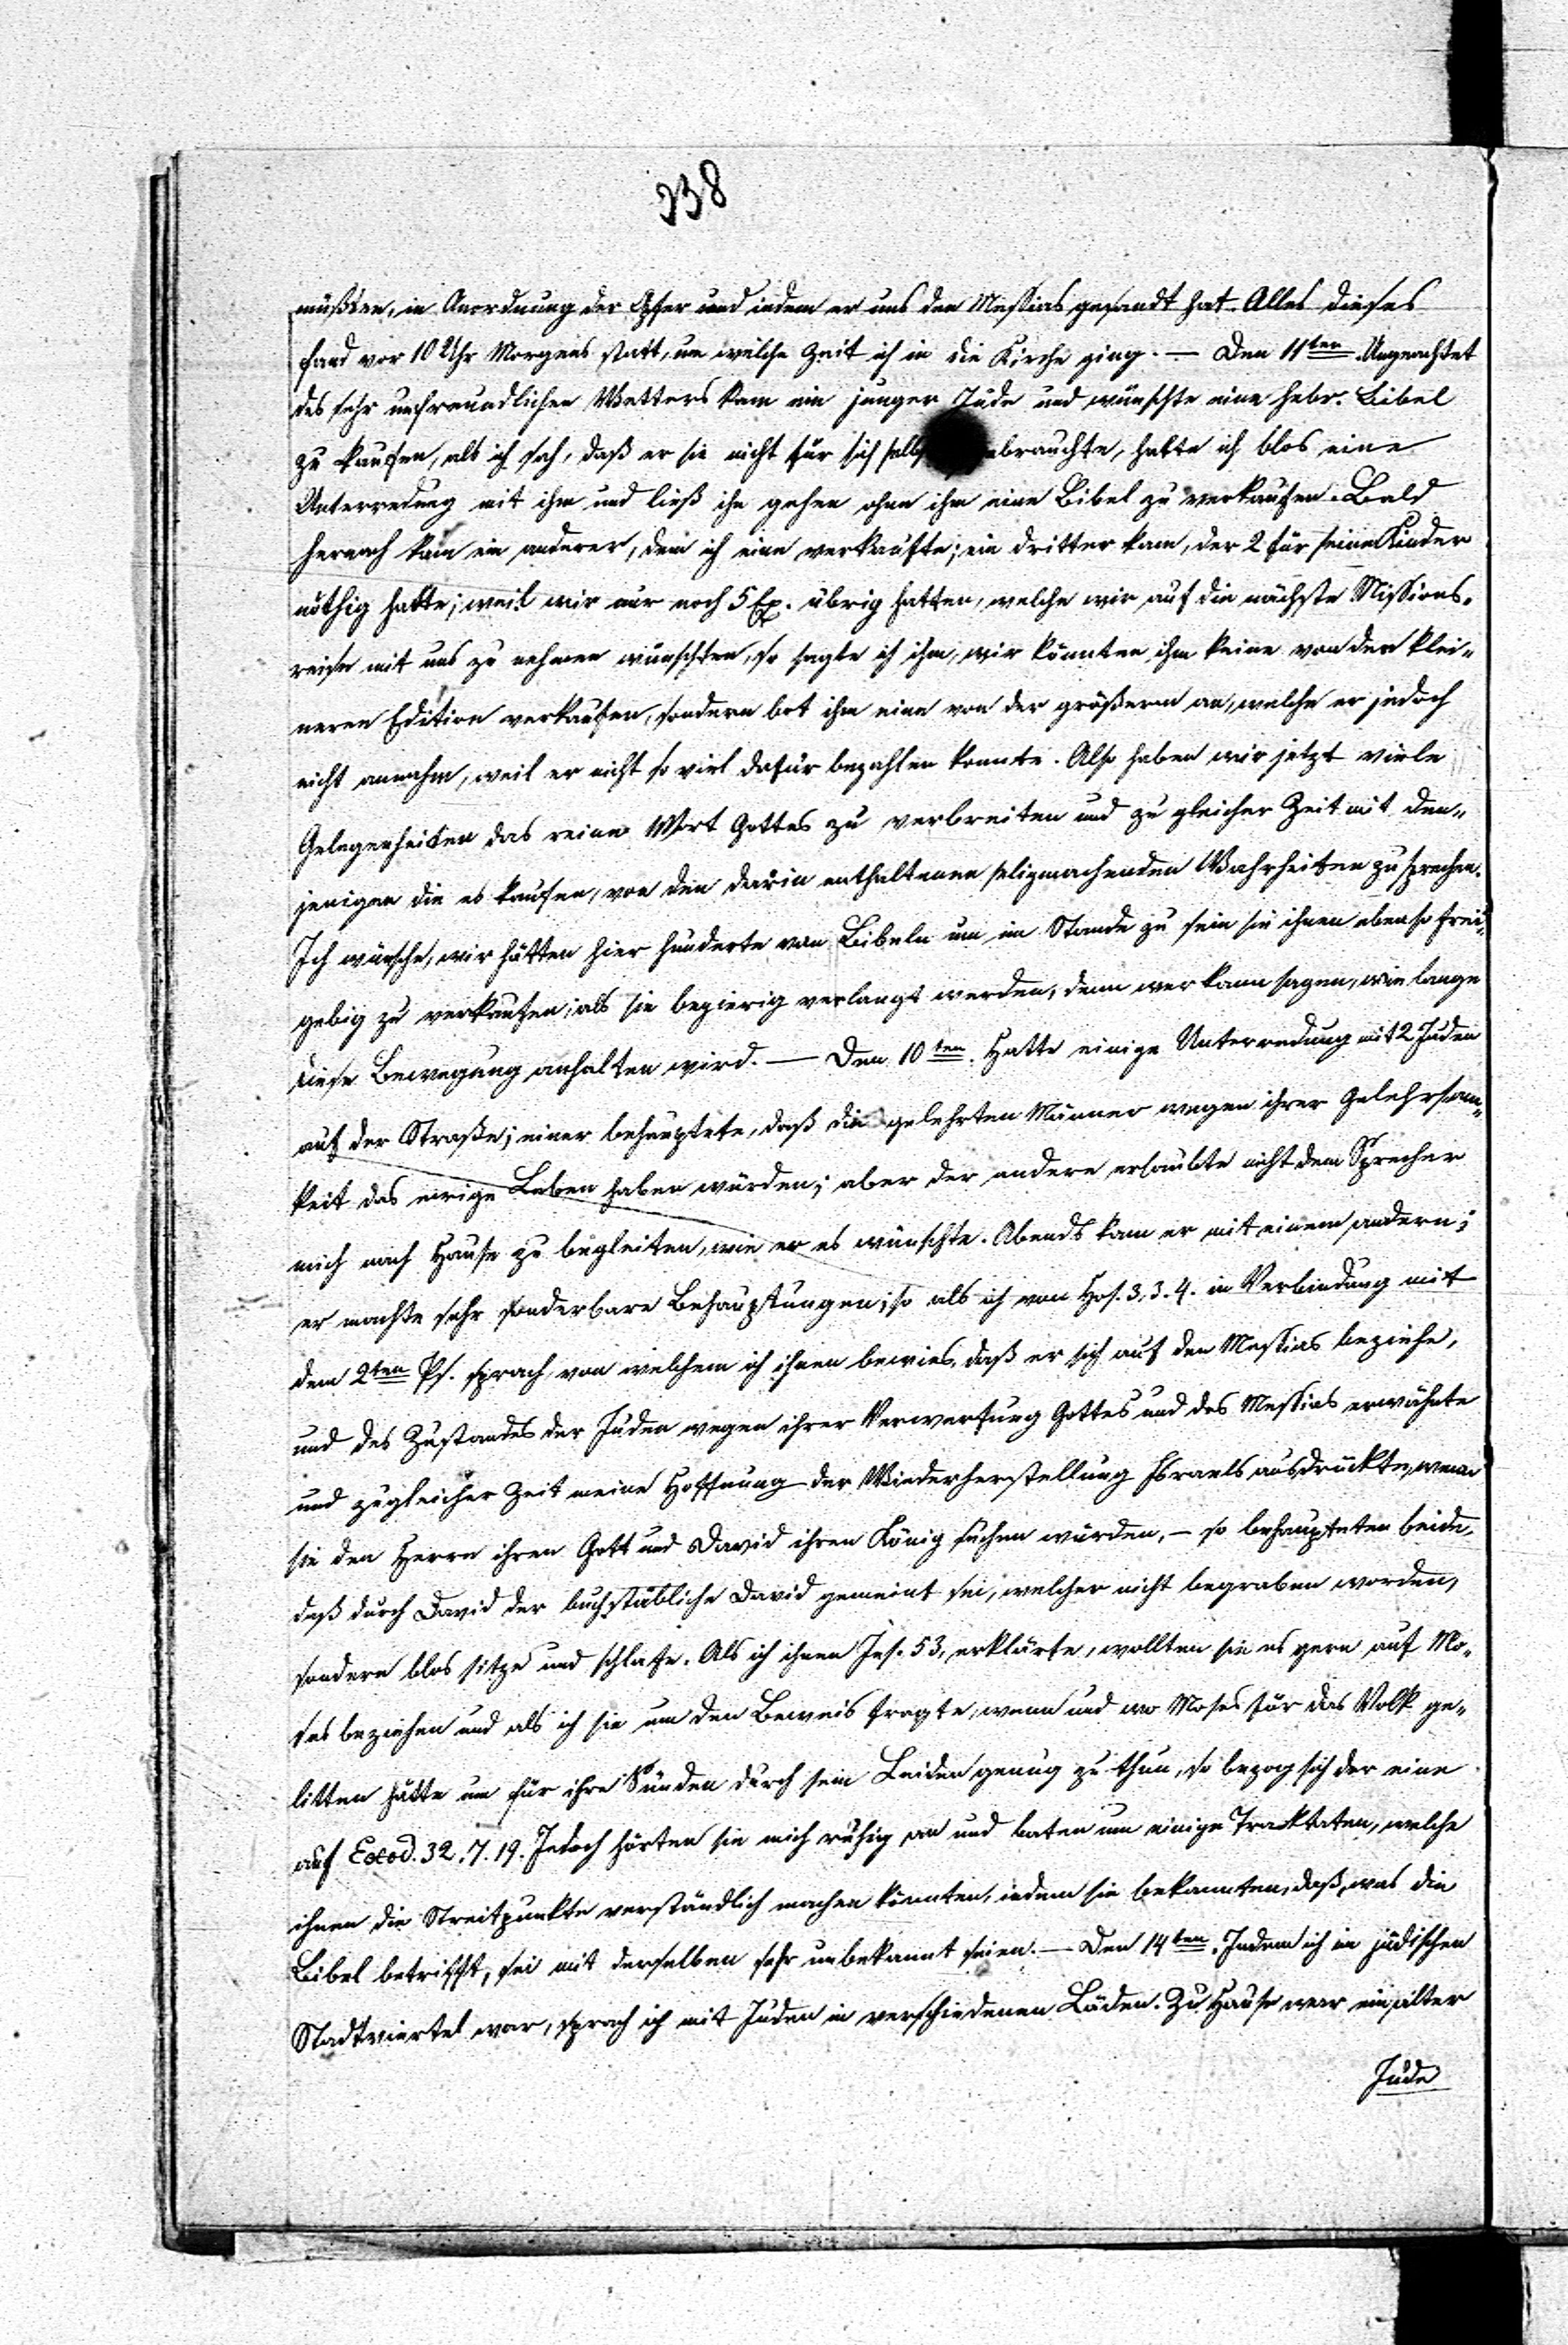 338
müßten, in Anordnung der Opfer und indem er uns den Messias gesandt hat. Alles dieses
fand vor 10 Uhr Morgens statt, um welche Zeit ich in die Kirche ging. — Den 11ten. Ungeachtet
des sehr unfreundlichen Wetters kam ein junger Jude und wünschte eine hebr. Bibel
zu kaufen, als ich sah, daß er sie nicht für sich selbst brauchte, hatte ich blos eine
Unterredung mit ihm und ließ ihn gehen ohne ihm eine Bibel zu verkaufen. Bald
hernach kam ein anderer, dem ich eine verkaufte; ein dritter kam, der 2 für seine Kinder
nöthig hatte; weil wir nur noch 5 Ex. übrig hatten, welche wir auf die nächste Missions-
reise mit uns zu nehmen wünschten, so sagte ich ihm, wir könnten ihm keine von der klei-
neren Edition verkaufen, sondern bot ihm eine von der größern an, welche er jedoch
nicht annahm, weil er nicht so viel dafür bezahlen konnte. Also haben wir jetzt viele
Gelegenheiten das reine Wort Gottes zu verbreiten und zu gleicher Zeit mit den-
jenigen die es kaufen, von den darin enthaltenen seligmachenden Wahrheiten zu sprechen.
Ich wünsche, wir hätten hier hunderte von Bibeln um im Stande zu sein sie ihnen ebenso frei-
gebig zu verkaufen, als sie begierig verlangt werden, denn wer kann sagen, wie lange
diese Bewegung anhalten wird. — Den 10ten. Hatte einige Unterredung mit 2 Juden
auf der Straße; einer behauptete, daß die gelehrten Männer wegen ihrer Gelehrsam-
keit das ewige Leben haben würden; aber der andere erlaubte nicht dem Sprecher
mich nach Hause zu begleiten, wie er es wünschte. Abends kam er mit einem andern;
er machte sehr sonderbare Behauptungen; so als ich von Hos. 3, 3. 4. in Verbindung mit
dem 2ten Ps. sprach von welchem ich ihnen bewies, daß er sich auf den Messias beziehe,
und des Zustandes der Juden wegen ihrer Verwerfung Gottes und des Messias erwähnte
und zugleicher Zeit meine Hoffnung der Wiederherstellung Israels ausdrückte, wenn
sie den Herrn ihren Gott und David ihren König suchen würden, — so behaupteten beide,
daß durch David der buchstäbliche David gemeint sei, welcher nicht begraben worden,
sondern blos sitze und schlafe. Als ich ihnen Jes. 53, erklärte, wollten sie es gern auf Mo-
ses beziehen und als ich sie um den Beweis fragte, wenn und wo Moses für das Volk ge-
litten hätte um für ihre Sünden durch sein Leiden genug zu thun, so bezog sich der eine
auf Exod. 32. 7. 19. Jedoch hörten sie mich ruhig an und baten um einige Traktaten, welche
ihnen die Streitpunkte verständlich machen könnten, indem sie bekannten, daß, was die
Bibel betrifft, sie mit derselben sehr unbekannt seien. — Den 14ten. Indem ich im jüdischen
Stadtviertel war, sprach ich mit Juden in verschiedenen Läden. Zu Hause war ein alter
Jude